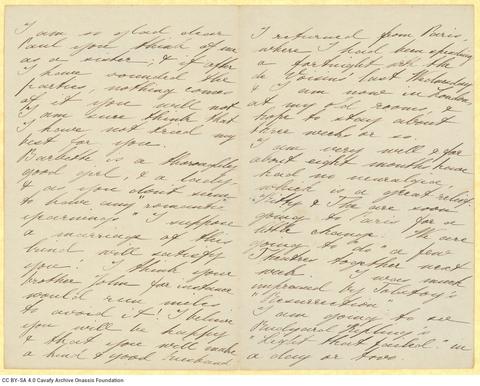 I am so glad dear
Paul you think of me
as a sister; & if after
I have sounded the
parties, nothing comes
of it you will not
I am sure think that
I have not tried my
best for you.
is a thoroughly
good girl, & a lady
& as you don't seem
to have any "romantic
yearnings" I suppose
a marriage of this
kind will satisfy
you! I think your
brother John for instance
would run miles
to avoid it! I believe
you will be happy
& that you will make
a kind & good husband
I returned from Paris,
where I had been spending
a fortnight with the
de last Wednesday
& I am now in London,
at my old rooms, &
hope to stay about
three weeks or so.
I am very well & for
about eight months have
had no neuralgia,
which is a great relief.
& are soon
going to Paris for a
little change. We are
going to "do" a few
Theatres together next
week. I was much
impressed by Tolstoy's
"Resurrection"
I am going to see
Rudyard Kipling's
"Light that failed" in
a day or two.
CC BY-SA 4.0 Cavafy Archive Onassis Foundation